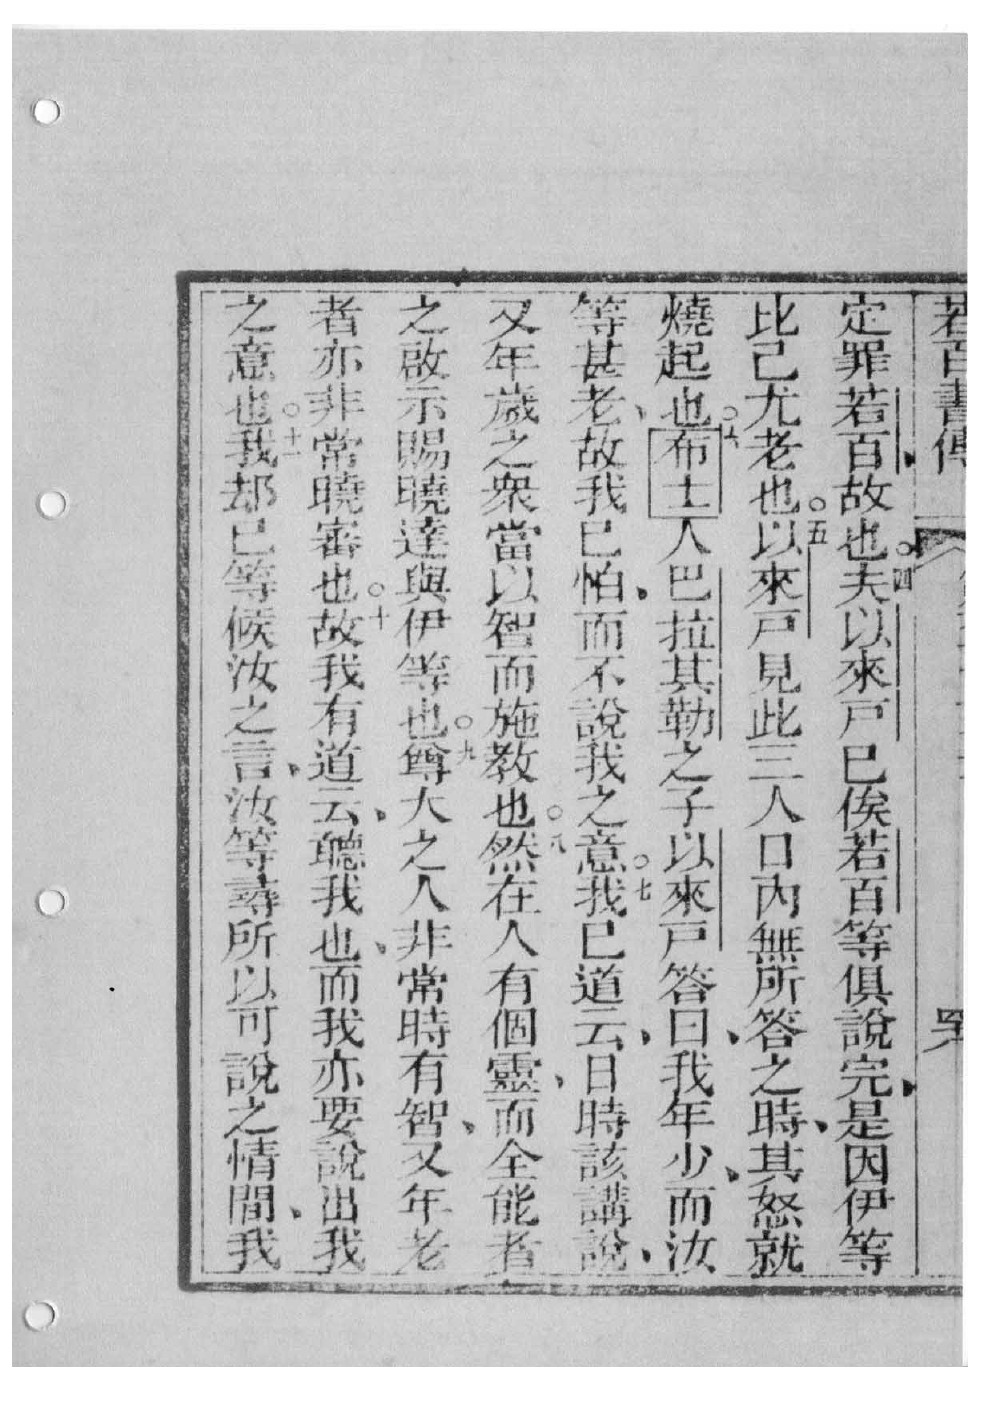 若百書傳
定罪若百故也○四夫以來戶已俟若百等俱說完、是因伊等
比己尤老也○五以來戶見此三人口內無所答之時、其怒就
燒起也○六布士人巴拉其勒之子以來戶答曰、我年少、而汝
等甚老、故我已怕、而不說我之意○七我已道云、日時該講說、
又年歲之衆當以智而施教也○八然在人有個靈、而全能者
之啟示賜曉達與伊等也○九尊大之人非常時有智、又年老
者亦非常曉審也○十故我有道云、聽我也、而我亦要說出我
之意也○十一我却已等候汝之言、汝等尋所以可說之情間、我